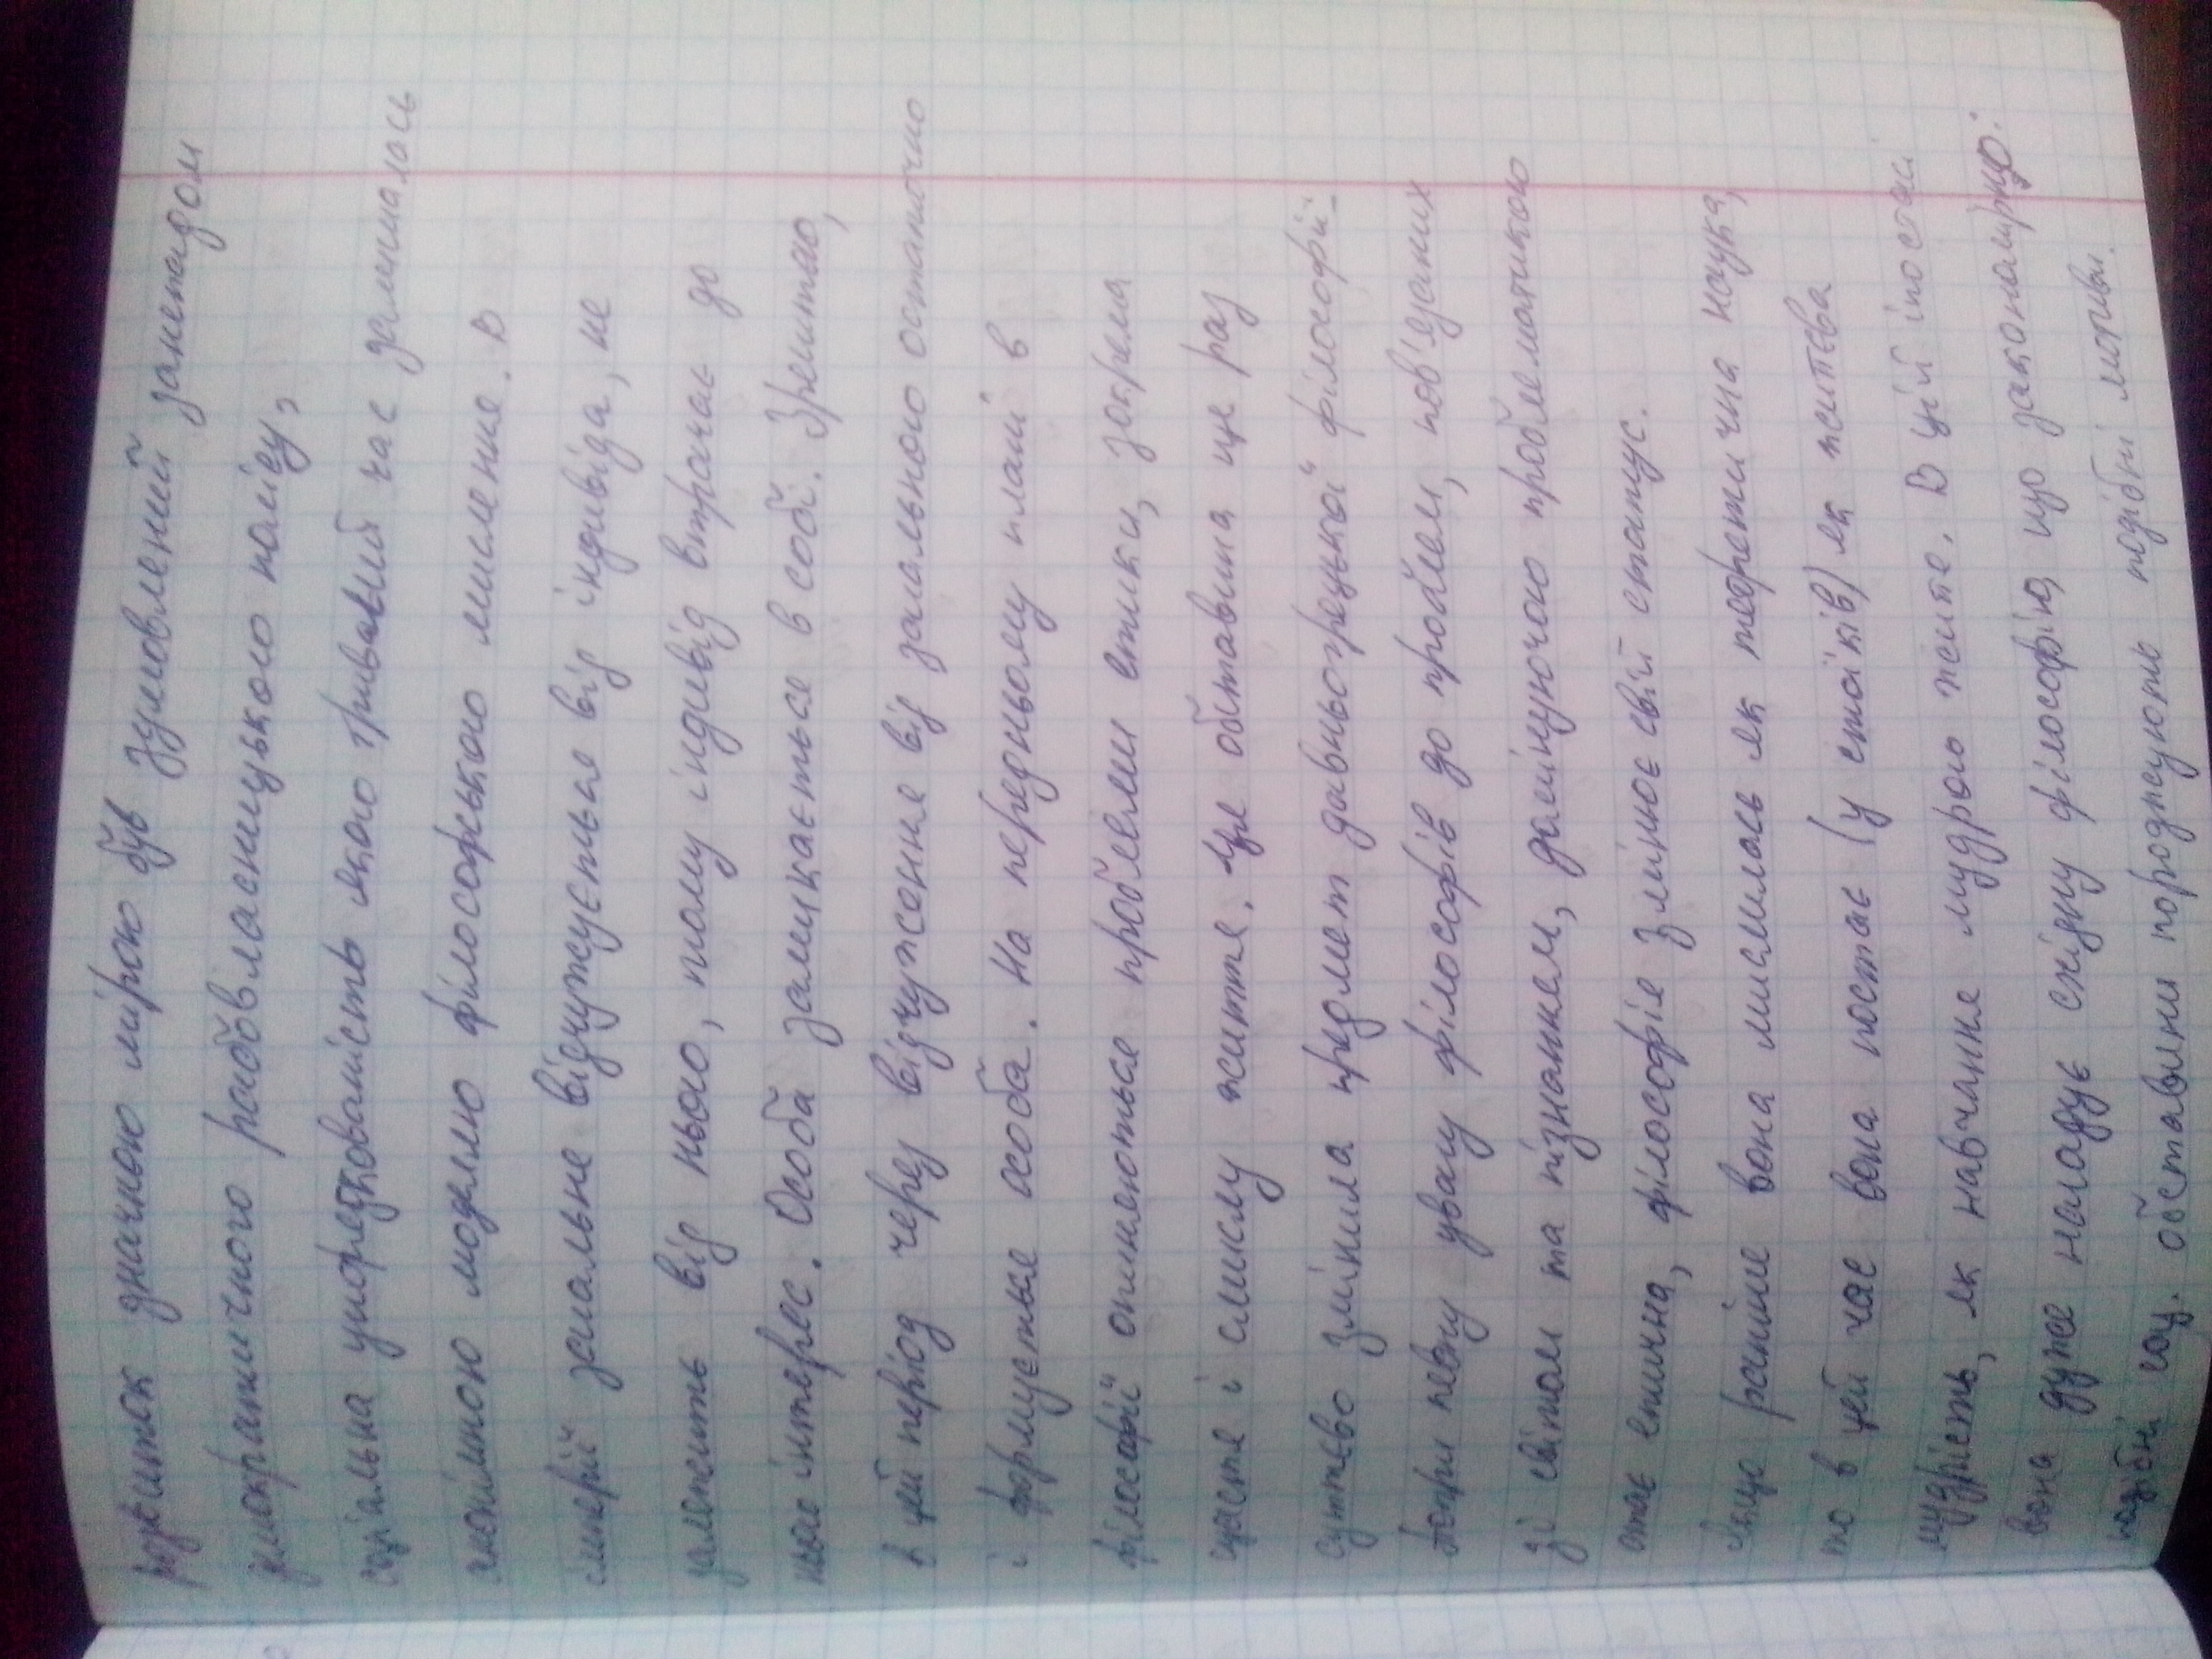 розвиток значною мірою був зумовлений занепадом
демократичного рабовласницького полісу,
соціальна унормованість якого тривалий час залишалась
анонімною моделлю філософського мислення. В
імперії загальне відчужується від індивіда, не
залежить від нього, тому індивід втрачає до
нього інтерес. Особа замикається в собі. Зрештою,
в цей період через відчуження від загального остаточно
і формується особа. На передньому плані в
філософії опиняються проблеми етики, зокрема
щастя і смислу життя. Це обставина ще раз
суттєво змінила предмет давньогрецької філософії.
Попри певну увагу філософів до проблем, пов'язаних
зі світом та пізнанням, домінуючою проблематикою
стає етична, філософія змінює свій статус.
Якщо раніше вона мислилась як теоретична наука,
то в цей час вона постає (у стоїків) як життєва
мудрість, як навчання мудрого життя. В цій іпостасі
вона дуже нагадує східну філософію, що закономірно:
подібні соц. обставини породжують подібні мотиви.